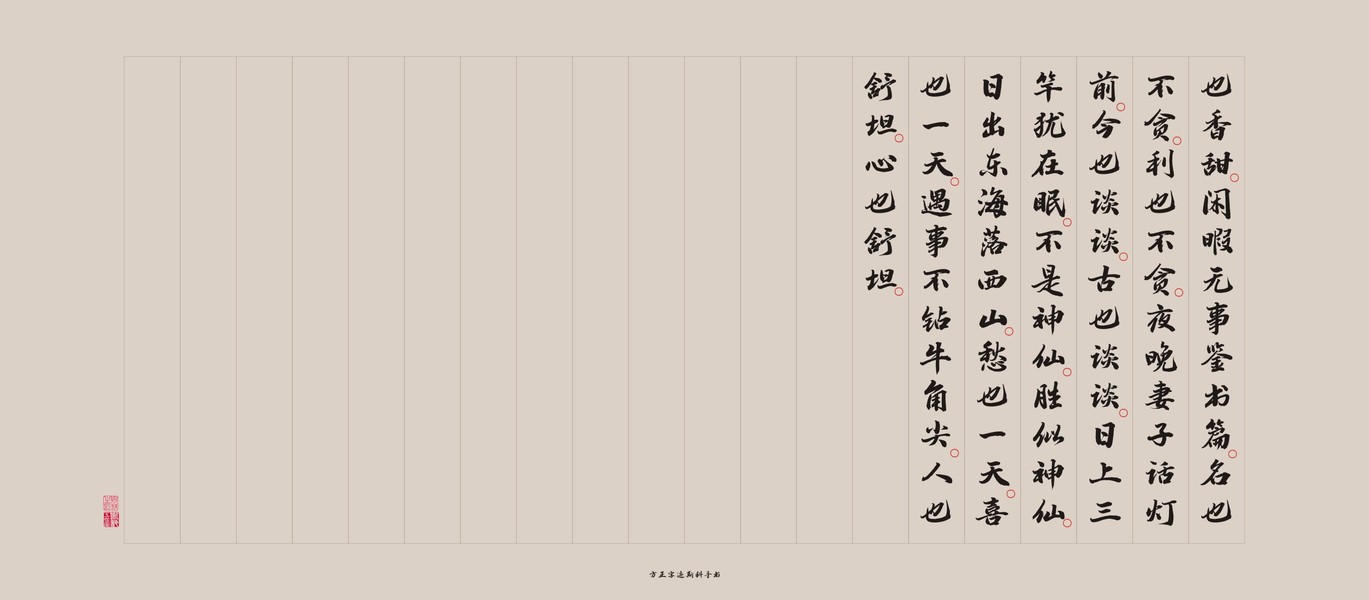 也香甜。闲暇无事鉴书篇。名也
不贪。利也不贪。夜晚妻子话灯
前。今也谈谈。古也谈谈。日上三
竿犹在眠。不是神仙。胜似神仙。
日出东海落西山。愁也一天。喜
也一天。遇事不钻牛角尖。人也
舒坦。心也舒坦。
方正字迹斯科手书